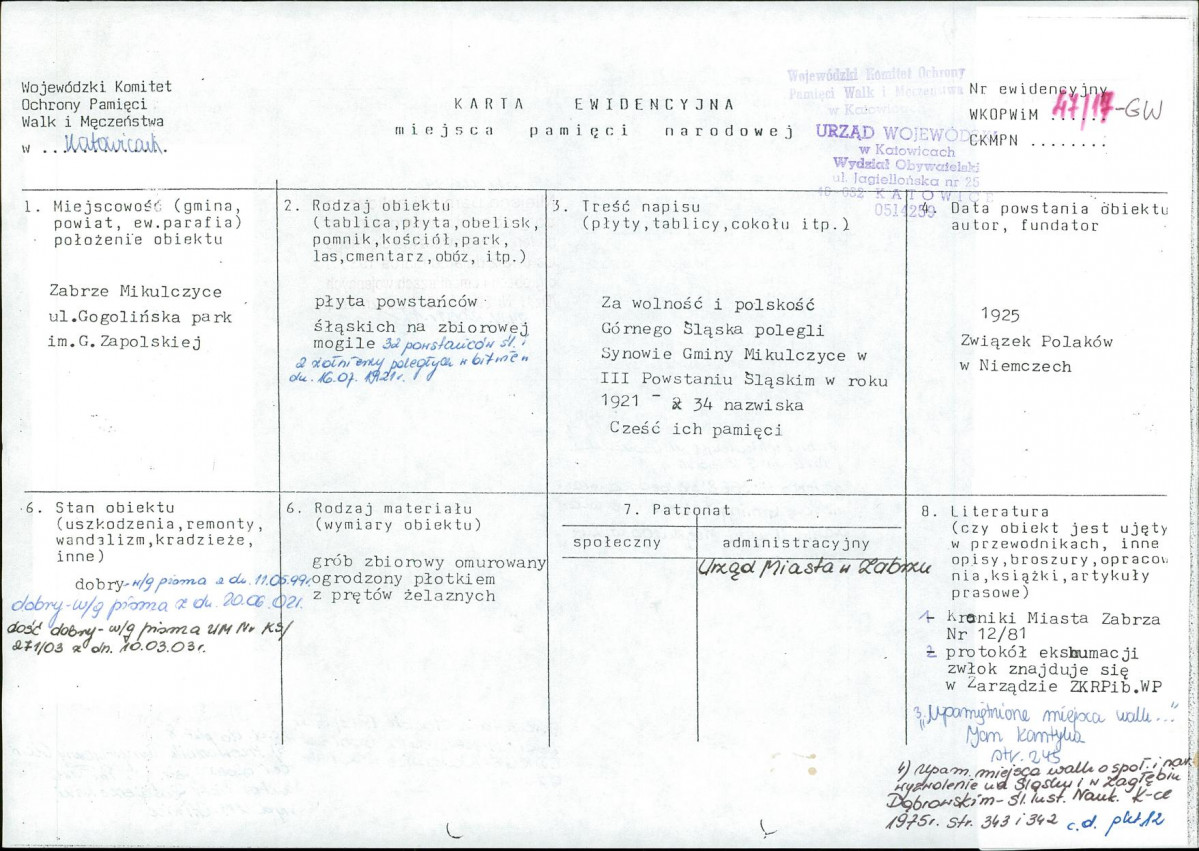 Wojewódzki Komitet
Ochrony Pamięci
Walk i Męczeństwa
w ..Katowicach.
KARTA EWIDENCYJNA
miejsca pamięci narodowej
Wojewódzki Komitet Ochrony
Pamięci Walk i Męczeństwa
w Katowicach
URZĄD WOJEWÓDZKI
w Katowicach
Wydział Obywatelski
ul. Jagiellońska nr 25
40-032 KATOWICE
0514259
Nr ewidencyjny
WKOPWiM 47/17-GW
CKMPN ........
1. Miejscowość (gmina,
powiat, ew.parafia)
położenie obiektu
Zabrze Mikulczyce
ul.Gogolińska park
im.G.Zapolskiej
2. Rodzaj obiektu
(tablica,płyta,obelisk,
pomnik,kościół,park,
las,cmentarz,obóz, itp.)
płyta powstańców
śląskich na zbiorowej
mogile 32 powstańców śl. i
2 żołnierzy poległych w bitwie
dn. 16.07.1921r.
3. Treść napisu
(płyty,tablicy,cokołu itp.)
Za wolność i polskość
Górnego Śląska polegli
Synowie Gminy Mikulczyce w
III Powstaniu Śląskim w roku
1921 - 34 nazwiska
Cześć ich pamięci
Data powstania obiektu
autor, fundator
1925
Związek Polaków
w Niemczech
6. Stan obiektu
(uszkodzenia,remonty,
wandalizm,kradzieże,
inne)
dobry-w/g pisma z dn. 11.05.99r.
dobry-w/g pisma z dn. 20.06.02r.
dość dobry-w/g pisma UM Nr KS/
271/03 z dn. 10.03.03r.
6. Rodzaj materiału
(wymiary obiektu)
grób zbiorowy omurowany
ogrodzony płotkiem
z prętów żelaznych
7. Patronat
społeczny
administracyjny
Urząd Miasta w Zabrzu
8. Literatura
(czy obiekt jest ujęty
w przewodnikach, inne
opisy,broszury,opracow
nia,książki,artykuły
prasowe)
1- Kroniki Miasta Zabrza
Nr 12/81
2- protokół ekshumacji
zwłok znajduje się
w Zarządzie ZKRPib.WP
3. "Upamiętnione miejsca walk..."
Jan Kantyka
str. 245
4) Upam. miejsca walk o społ. i nar.
wyzwolenie na Śląsku i w Zagłębiu
Dąbrowskim-Śl. Inst. Nauk. K-ce
1975r. str. 343 i 342 c.d. pkt 12